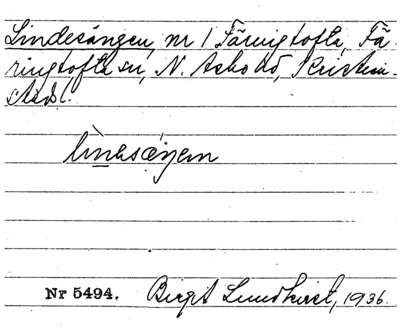 Lindesängen, nr 1 Färingtofta, Fä-
ringtofta sn, N. Åsbo hd, Kristian-
stads l.
Nr 5494. Birgit Lundkvist, 1936.